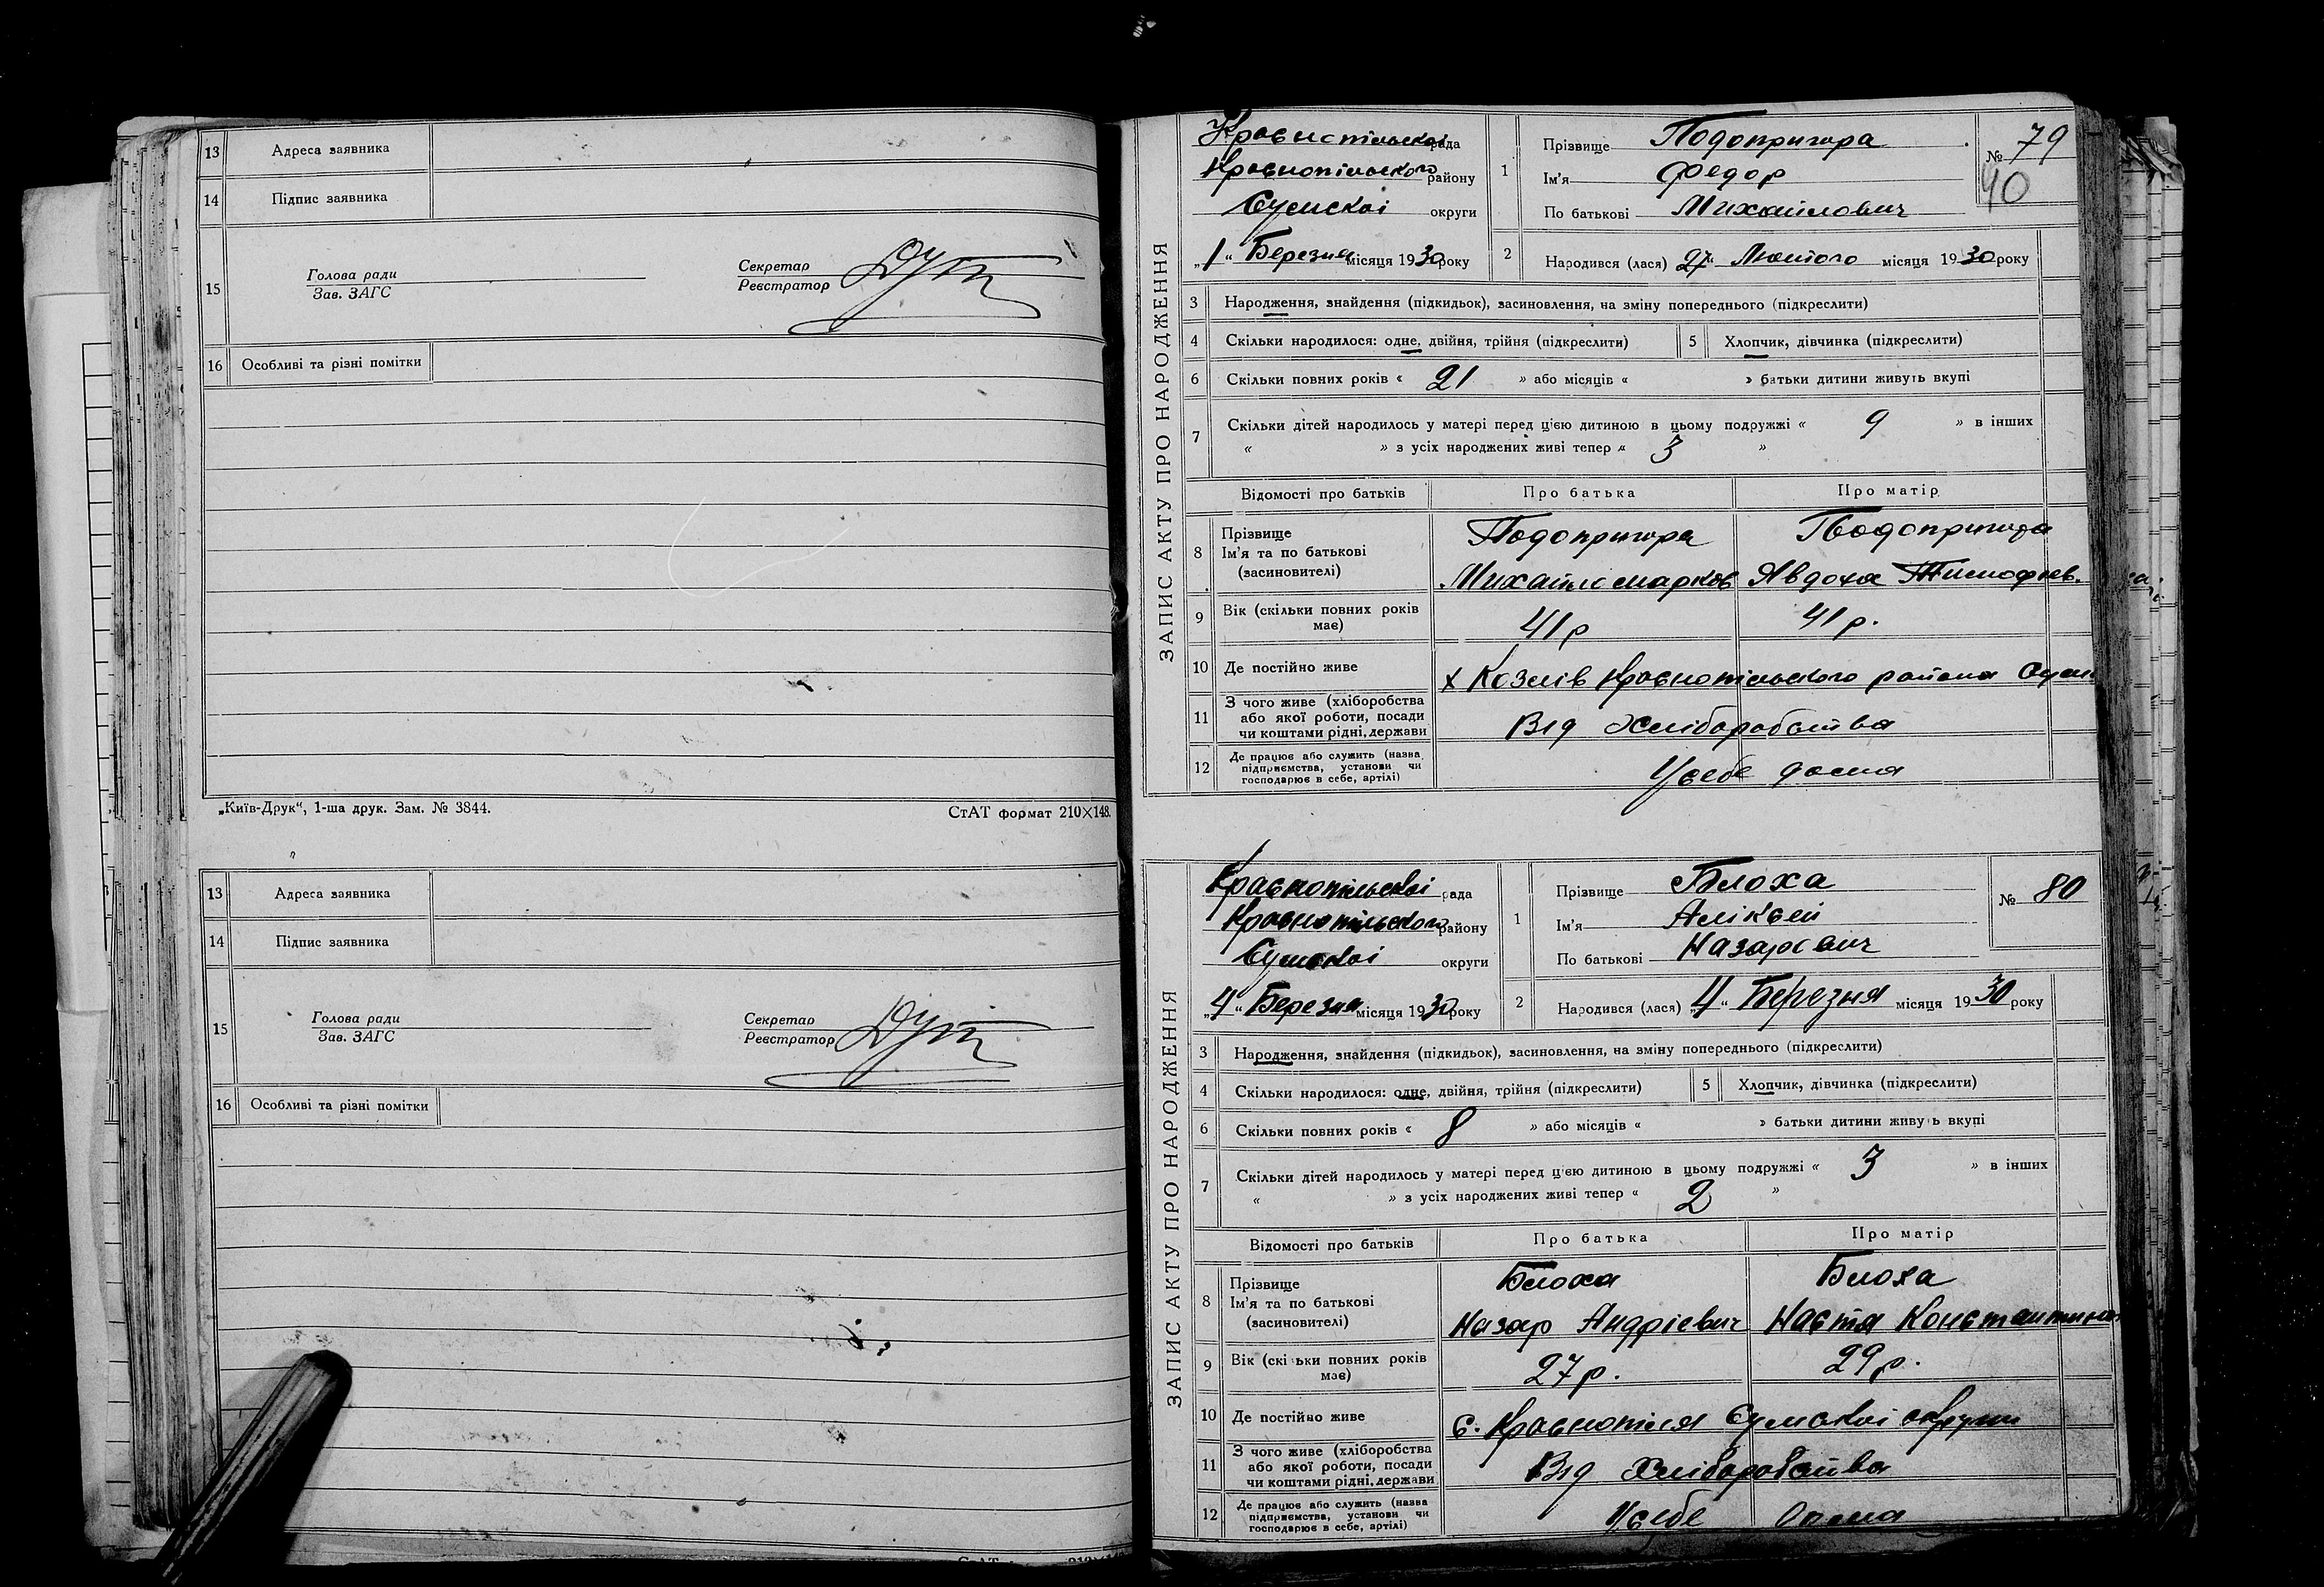 13 Адреса заявника
14 Підпис заявника
15 Голова ради
Зав. ЗАГС
Секретар
Реєстратор
16 Особливі та різні помітки
„Київ-Друк“, 1-ша друк. Зам. № 3844.
СтАТ формат 210×148.
13 Адреса заявника
14 Підпис заявника
15 Голова ради
Зав. ЗАГС
Секретар
Реєстратор
16 Особливі та різні помітки
ЗАПИС АКТУ ПРО НАРОДЖЕННЯ
Краснопільської рада
Краснопільского району
Сумскої округи
„1“ Березня місяця 1930 року
1 Прізвище Подопригора
Ім'я Федор
По батькові Михайлович
№ 79
40
2 Народився (лася) 27 Лютого місяця 1930 року
3 Народження, знайдення (підкидьок), засиновлення, на зміну попереднього (підкреслити)
4 Скільки народилося: одне, двійня, трійня (підкреслити)
5 Хлопчик, дівчинка (підкреслити)
6 Скільки повних років « 21 » або місяців « » батьки дитини живуть вкупі
7 Скільки дітей народилось у матері перед цією дитиною в цьому подружжі « 9 » в інших
« » з усіх народжених живі тепер « 3 »
Відомості про батьків Про батька Про матір
8 Прізвище
Ім'я та по батькові
(засиновителі)
Подопригора Подопригора
Михайло Марков Явдоха Тимофієв.
9 Вік (скільки повних років має) 41 р 41 р.
10 Де постійно живе х Козлів Краснопільского района Сум
11 З чого живе (хліборобства
або якої роботи, посади
чи коштами рідні, держави
Від Хліборобства
12 Де працює або служить (назва
підприємства, установи чи
господарює в себе, артілі)
У себе дома
ЗАПИС АКТУ ПРО НАРОДЖЕННЯ
Краснопільскої рада
Краснопільского району
Сумскої округи
„4“ Березня місяця 1930 року
1 Прізвище Блоха
Ім'я Аліксей
По батькові Назарович
№ 80
2 Народився (лася) „4“ Березня місяця 1930 року
3 Народження, знайдення (підкидьок), засиновлення, на зміну попереднього (підкреслити)
4 Скільки народилося: одне, двійня, трійня (підкреслити)
5 Хлопчик, дівчинка (підкреслити)
6 Скільки повних років « 8 » або місяців « » батьки дитини живуть вкупі
7 Скільки дітей народилось у матері перед цією дитиною в цьому подружжі « 3 » в інших
« » з усіх народжених живі тепер « 2 »
Відомості про батьків Про батька Про матір
8 Прізвище
Ім'я та по батькові
(засиновителі)
Блоха Блоха
Назар Андрієвич Настя Константинов
9 Вік (скільки повних років має) 27 р. 29 р.
10 Де постійно живе с. Краснопілля Сумскої округи
11 З чого живе (хліборобства
або якої роботи, посади
чи коштами рідні, держави
Від Хліборобства
12 Де працює або служить (назва
підприємства, установи чи
господарює в себе, артілі)
У себе дома